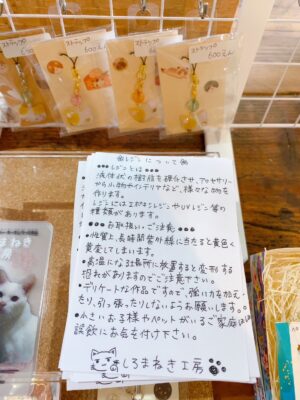 ストラップ
600えん
ストラップ
600えん
ストラップ
600えん
レジンについて
レジンとは
液体状の樹脂を硬化させ、アクセサリー
から小物やインテリアなど、様々な物を
作ります。
レジンにはエポキシレジンやUVレジン等の
種類があります。
お取扱い、ご注意
・性質上、長時間紫外線に当たると黄色く
黄変してしまいます。
・高温になる場所に放置すると変形する
恐れがありますのでご注意下さい。
・デリケートな作品ですので、強い力を加え
たり、引っ張ったりしないようお願いします。
・小さいお子様やペットがいるご家庭は
誤飲にお気を付け下さい。
しろまねき工房
まねき
房